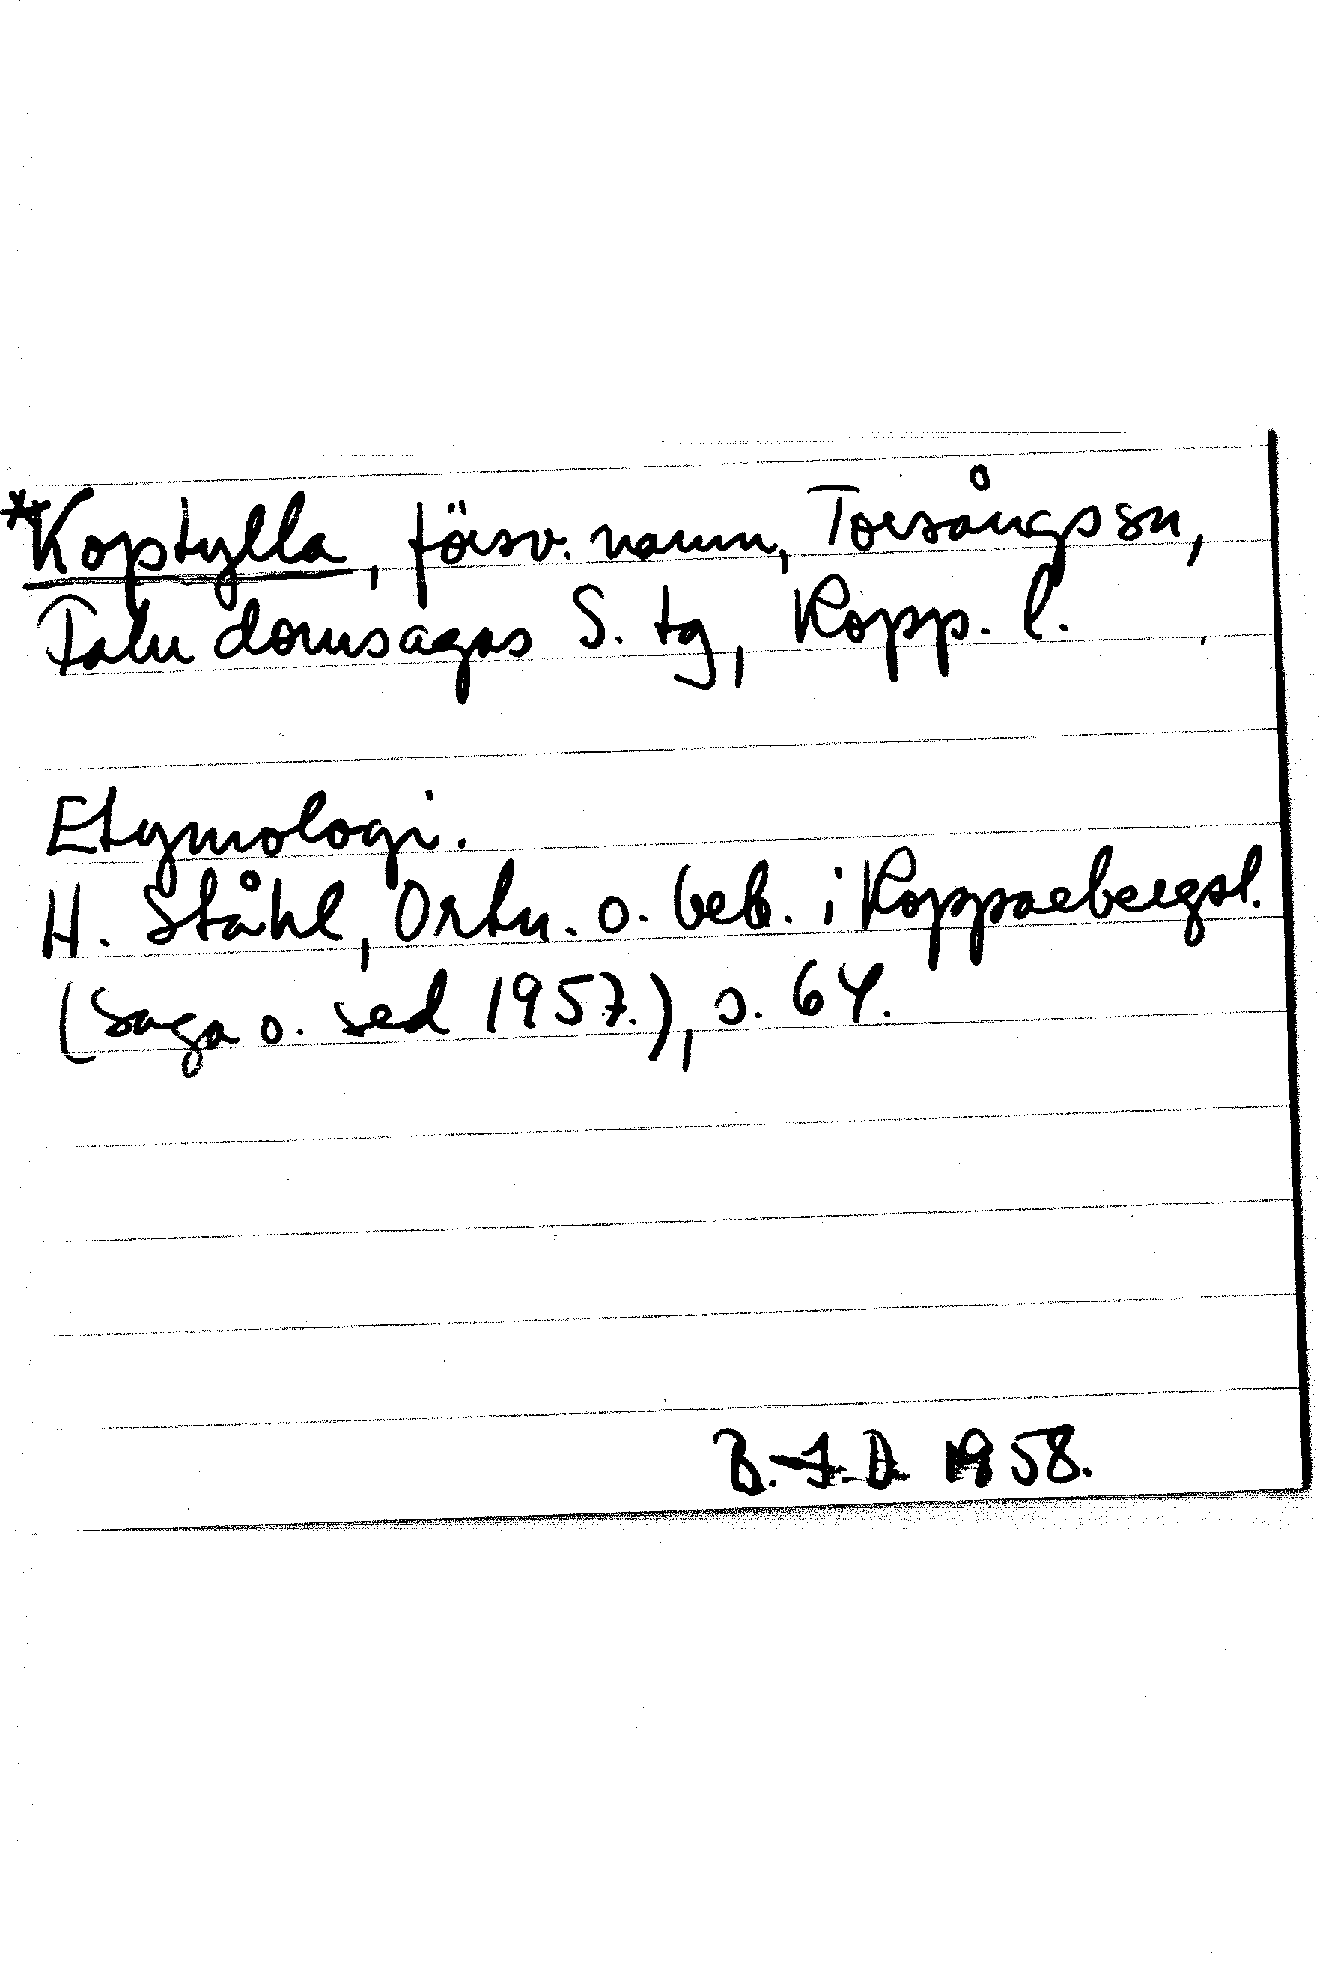 *Koptylla, försv. namn, Torsångs sn,
Falu domsagas S. tg, Kopp. l.
Etymologi.
H. Ståhl, Ortn. o. beb. i Kopparbergsl.
(Saga o. sed 1957.), s. 64.
B. 1958.